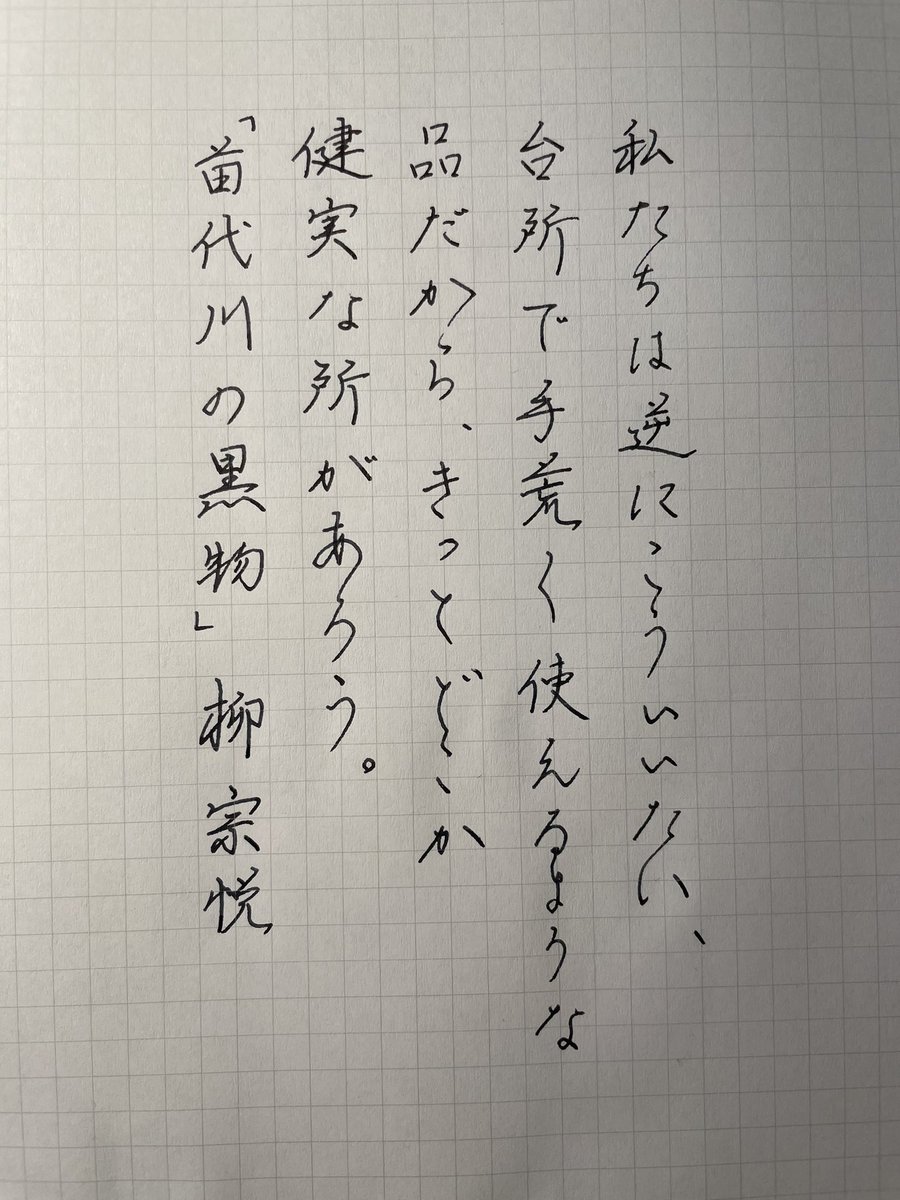 私たちは逆にこういいたい、
台所で手荒く使えるような
品だから、きっとどこか
健実な所があろう。
「苗代川の黒物」柳宗悦